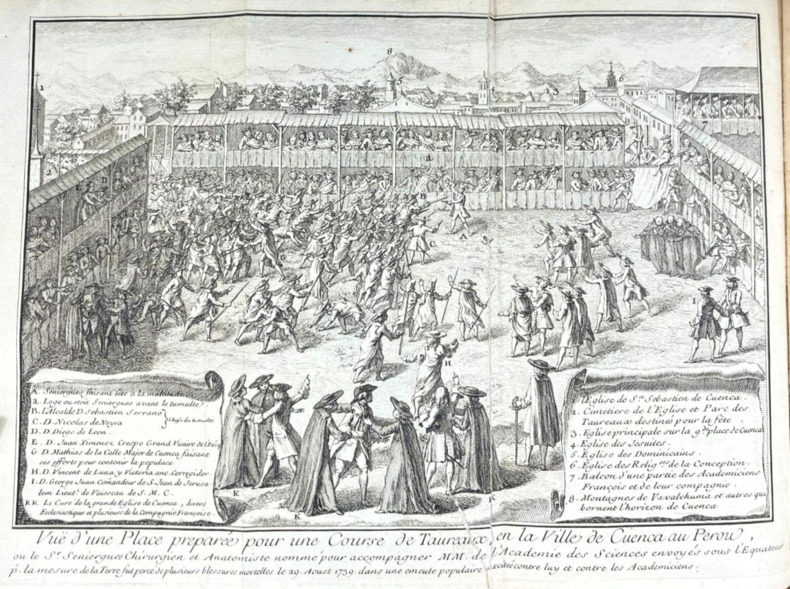 A. Seniergues faisant tete a la multitude
a. Loge ou etoit Seniergues avant le tumulte
B. l'Alcalde D. Sebastien Serrano
C. D. Nicolas de Neyra
D. D. Diego de Leon.
Chefs du tumulte
E. D. Juan Ximenez Crespo Grand Vicaire de
G D. Mathias de la Calle Major de Cuenca, faisant
ses efforts pour contenir la populace
H. D. Vincent de Luna, y Victoria anc. Corregidor
I. D. George Juan Comandeur de S. Jean de Jerusa
lem Lieut. de Vaisseau de S. M. C.
K Le Curé de la grande Eglise de Cuenca, divers
Ecclesiastiques et plusieurs de la Compagnie Françoise
1. l'Eglise de St. Sebastien de Cuenca.
2. Cimetiere de l'Eglise et Parc des
Taureaux destinés pour la fête
3. Eglise principale sur la gde. place de Cuenca
4. Eglise des Jesuites.
5. Eglise des Dominicains.
6. Eglise des Relig. de la Conception.
7. Balcon d'une partie des Academiciens
François et de leur compagnie.
8. Montagnes de Vavalchuma et autres qui
bornent l'horizon de Cuenca
Vuë d'une Place preparée pour une Course de Taureaux, en la Ville de Cuenca au Perou,
ou le Sr. Seniergues Chirurgien et Anatomiste nommé pour accompagner MM. de l'Academie des Sciences envoyés sous l'Equateur
pr. la mesure de la Terre, fut percé de plusieurs blessures mortelles le 29. Aoust 1739. dans une emeute populaire excitée contre luy et contre les Academiciens.